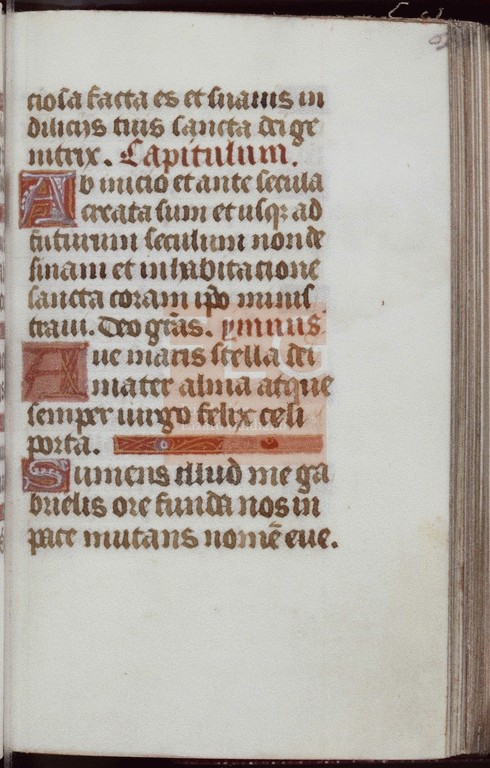 ciosa facta es et suavis in
diliciis tuis sancta dei ge
nitrix. Capitulum.
Ab inicio et ante secula
creata sum et usqꝫ ad
futurum seculum non de
sinam et in habitacione
sancta coram ip̄o minis
travi. Deo gr̄as. ymnus.
Ave maris stella dei
mater alma atque
semper virgo felix celi
porta.
Sumens illud me ga
brielis ore funda nos in
pace mutans nomē eve.